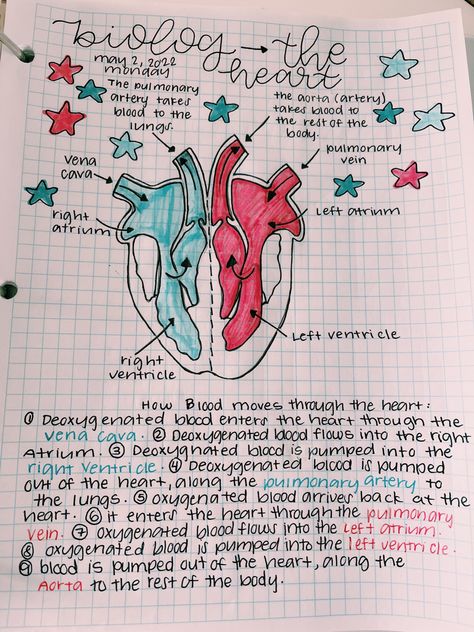 biology → the heart
may 2, 2022
monday
The pulmonary
artery takes
blood to the
lungs.
the aorta (artery)
takes blood to
the rest of the
body.
vena
cava
pulmonary
vein
right
atrium
Left atrium
Left ventricle
right
ventricle
How Blood moves through the heart:
① Deoxygenated blood enters the heart through the
vena cava. ② Deoxygenated blood flows into the right
Atrium. ③ Deoxygnated Blood is pumped into the
right ventricle. ④ Deoxygenated blood is pumped
out of the heart, along the pulmonary artery to
the lungs. ⑤ oxygenated blood arrives back at the
heart. ⑥ it enters the heart through the pulmonary
vein. ⑦ oxygenated blood flows into the Left atrium.
⑧ oxygenated blood is pumped into the left ventricle.
⑨ blood is pumped out of the heart, along the
Aorta to the rest of the body.